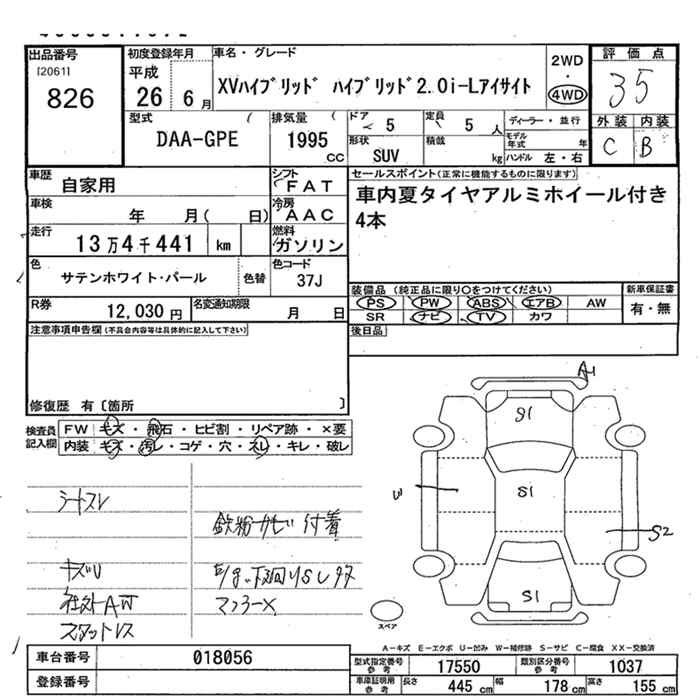 出品番号
[2061]
826
初度登録年月
平成
26 6 月
車名・グレード
XVハイブリッド ハイブリッド2.0i-Lアイサイト
2WD
・
4WD
評価点
35
外装 内装
C B
型式
DAA-GPE
排気量
1995
cc
ドア
5
形状
SUV
定員
5 人
積載
kg
ディーラー・並行
モデル年式 年
ハンドル 左・右
車歴
自家用
車検
年 月( 日)
走行
13万4千441 km
色
サテンホワイト・パール
色替
シフト
FAT
冷房
AAC
燃料
ガソリン
色コード
37J
R券
12,030 円
名変通知期限
月 日
セールスポイント(正常に機能するものに限ります)
車内夏タイヤアルミホイール付き
4本
装備品 (純正品に限り○をつけてください)
PS PW ABS エアB AW
SR ナビ TV カワ
新車保証書
有・無
後日品
注意事項申告欄(不具合内容等は具体的に記入して下さい)
修復歴 有〔箇所 〕
検査員
記入欄
FW キズ・飛石・ヒビ割・リペア跡・×要
内装 キズ・汚レ・コゲ・穴・スレ・キレ・破レ
シートスレ
鉄粉サビ付着
キズU
社外AW
マフラーX
スタットレス
A1
S1
S1
S1
S2
U
スペア
A-キズ E-エクボ U-凹み W-補修跡 S-サビ C-腐食 XX-交換済
車台番号
018056
登録番号
型式指定番号
参考
17550
類別区分番号
参考
1037
車庫証明用
参考
長さ 445 cm 幅 178 cm 高さ 155 cm